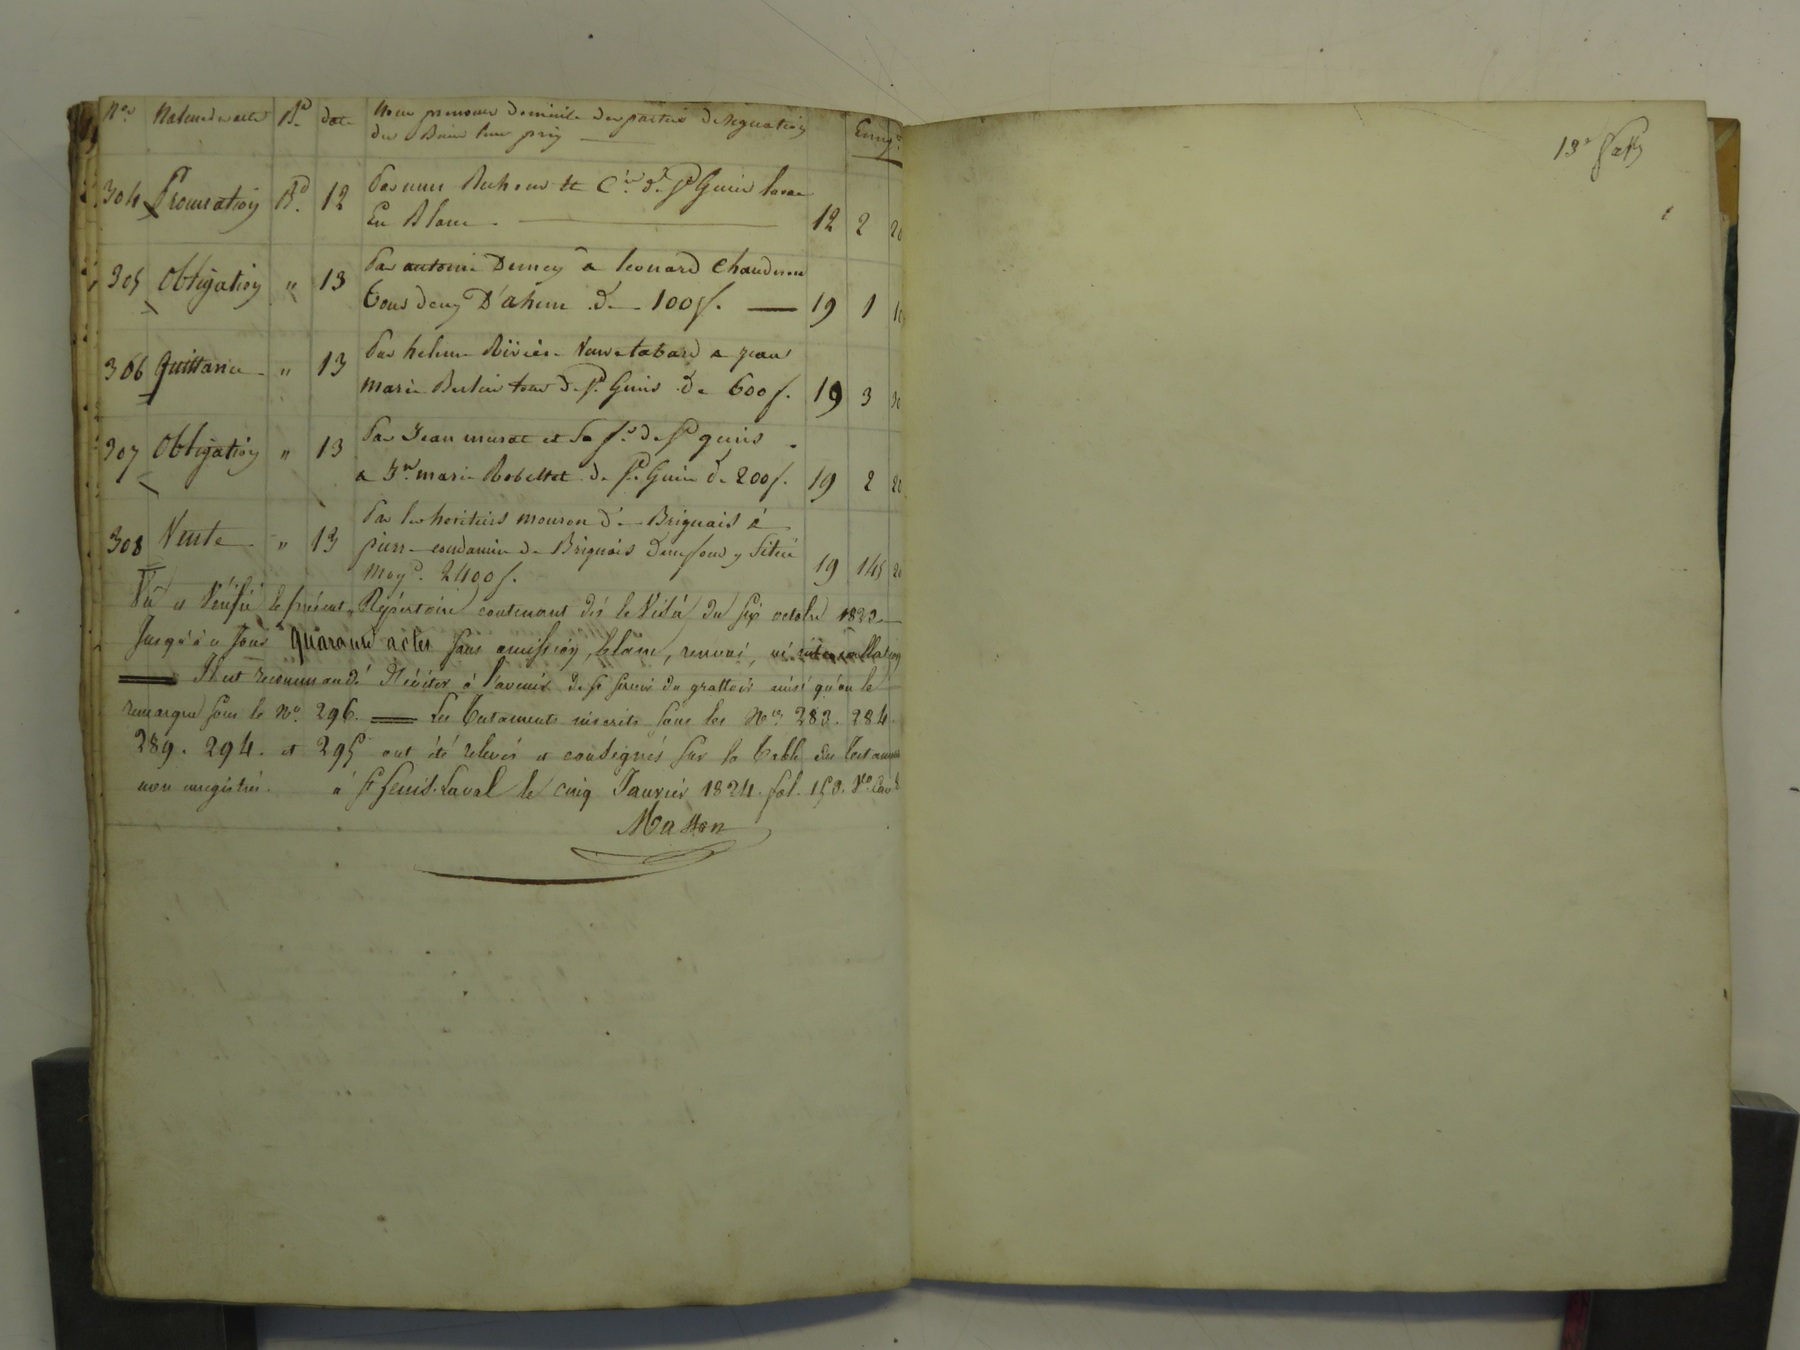 Nos Nature des actes Bt date Nom prenoms Domicile des parties designation
des Biens leur prix Enregt
304 Procuration Bt 12 Par
En Blanc. 12 2 20
305 Obligation " 13 Par antoine Dumey a leonard Chauderon
tous deux D'ahun de 100 f. 19 1 10
306 quittance " 13 Par helene Rivière Veuve tabard a jean
marie Berlier tous de St Genis de 600 f. 19 3 30
307 Obligation " 13 Par Jean murat et sa fe de St genis
a Jn marie Robettet de St Genis de 200 f. 19 2 20
308 Vente " 13 Par les heritiers mouron de Brignais à
pierre condamin de Brignais d'un fond y situé
moyt. 2400 f. 19 145 20
Vu et Vérifié le présent Répertoire contenant dès le Visa du six octobre 1823
Jusqu'à ce jour quarante actes sans omission, blanc, renvoi, ni intercallation
Il est recommandé d'éviter à l'avenir de se servir du grattoir ainsi qu'on le
remarque sous le No. 296. Les Testaments inscrits sous les Nos 283. 284.
289. 294. et 295 ont été relevés et consignés sur la Table des Testaments
non enregistrés. à St Genis-Laval le cinq Janvier 1824. fol. 150. Vo. Case
Masson
13e